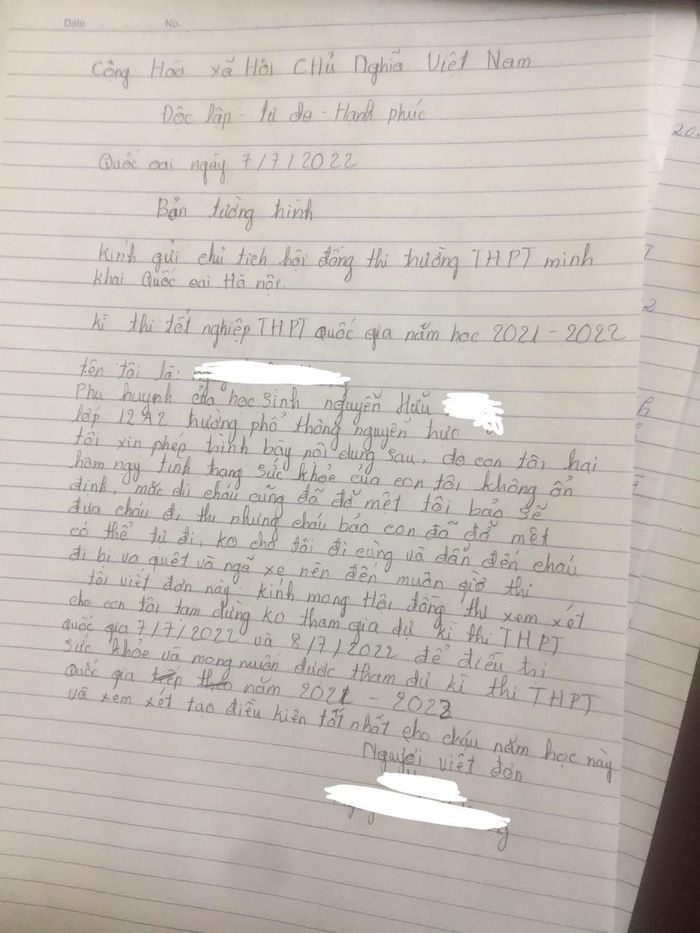 Date No.
Cộng Hoà xã Hội CHủ Nghĩa Việt Nam
Độc lập - tự do - Hạnh phúc
Quốc oai ngày 7/7/2022
Bản tường trình
kính gửi chủ tich hội đồng thi trường THPT minh
khai Quốc oai Hà nội.
kì thi tốt nghiệp THPT quốc gia năm học 2021-2022
tên tôi là:
Phụ huynh của học sinh nguyễn Hữu
lớp 12A2 trường phổ thông nguyễn trực
tôi xin phép trình bày nội dung sau, do con tôi hai
hôm nay tình trạng sức khỏe của con tôi không ổn
định, mặc dù cháu cũng đã đỡ mệt tôi bảo sẽ
đưa cháu đi thi nhưng cháu bảo con đã đỡ mệt
có thể tự đi, ko cho tôi đi cùng và dẫn đến cháu
đi bị va quệt và ngã xe nên đến muộn giờ thi
tôi viết đơn này kính mong Hội đồng thi xem xét
cho con tôi tạm dừng ko tham gia dự kì thi THPT
quốc gia 7/7/2022 và 8/7/2022 để điều trị
sức khỏe và mong muốn được tham dự kì thi THPT
quốc gia tiếp theo năm 2021 - 2022
và xem xét tạo điều kiện tốt nhất cho cháu năm học này
Người viết đơn